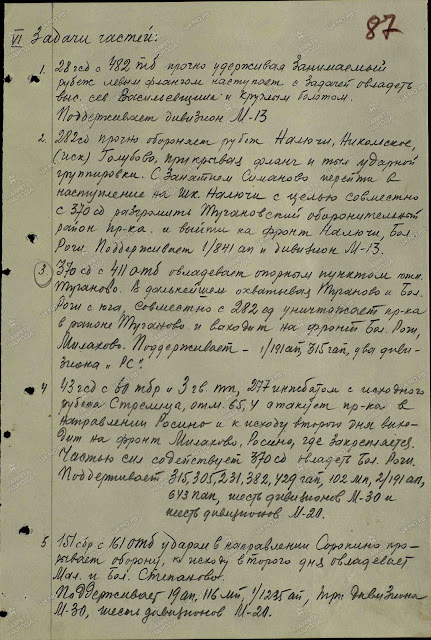 87
VI Задачи частей:
1. 28 гсд с 482 тб прочно удерживая занимаемый
рубеж левым флангом наступает с задачей овладеть
выс. сев Васильевщина и Круглым болотом.
Поддерживает дивизион М-13
2. 282сд прочно обороняет рубеж Налючи, Никольское,
(иск) Голубово, прикрывая фланг и тыл ударной
группировки. С занятием Симаново перейти в
наступление на Шк. Налючи с целью совместно
с 370 сд разгромить Тугановский оборонительный
район пр-ка. и выйти на фронт Налючи, Бол.
Роги. Поддерживает 1/841 ап и дивизион М-13.
3. 370 сд с 411 отб овладевает опорным пунктом
Туганово. В дальнейшем охватывая Туганово и Бол.
Роги с юга, совместно с 282 сд уничтожает пр-ка
в районе Туганово и выходит на фронт Бол. Роги,
Милахово. Поддерживает – 1/191 ап, 315 гап, два диви-
зиона "РС".
4 43 гсд с 60 тбр и 3 гв. тп, 277 инжбатом с исходного
рубежа Стрелица, отм. 65,4 атакует пр-ка в
направлении Росино и к исходу второго дня выхо-
дит на фронт Милахово, Росино, где закрепляется.
Частью сил содействует 370 сд овладеть Бол. Роги.
Поддерживает 315, 305, 231, 382, 429 гап, 102 мп, 2/191 ап,
643 пап, шесть дивизионов М-30 и
шесть дивизионов М-20.
5 151 сбр с 161 отб ударом в направлении Сорокино про-
рывает оборону, к исходу второго дня овладевает
Мал. и Бол. Степаново.
Поддерживает 19 ап, 116 мп, 1/1235 ап, три дивизиона
М-30, шесть дивизионов М-20.